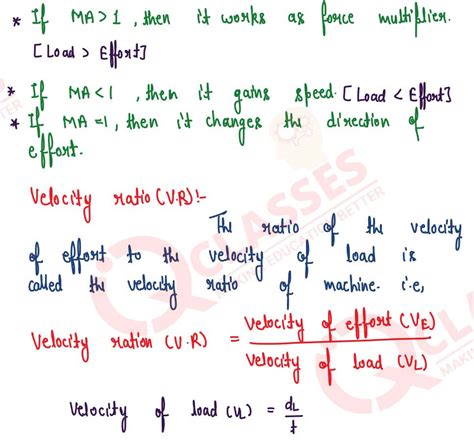 * If MA > 1, then it works as force multiplier.
[Load > Effort]
* If MA < 1, then it gains speed. [Load < Effort]
* If MA = 1, then it changes the direction of
effort.
Velocity ratio (V.R) :-
The ratio of the velocity
of effort to the velocity of load is
called the velocity ratio of machine. i.e,
Velocity ration (V.R) = Velocity of effort (VE) / Velocity of load (VL)
Velocity of load (VL) = dL / t
CLASSES
MAKING EDUCATION BETTER